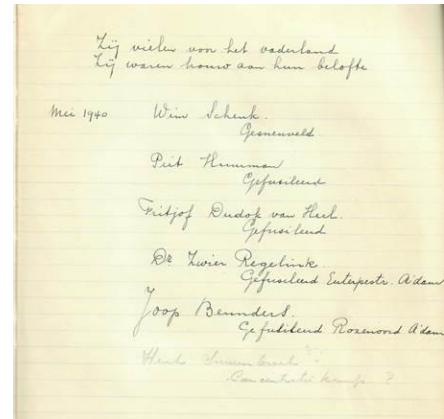 Zij vielen voor het vaderland
Zij waren trouw aan hun belofte
Mei 1940 Wim Schenk.
Gesneuveld
Piet
Gefusileerd
Fritjof Dudok van Heel.
Gefusileerd
Dr Zwier Regelink.
Gefusileerd Euterpestr. A'dam
Joop Beunders.
Gefusileerd Rozenoord A'dam
Henk ?
Concentratie kamp ?